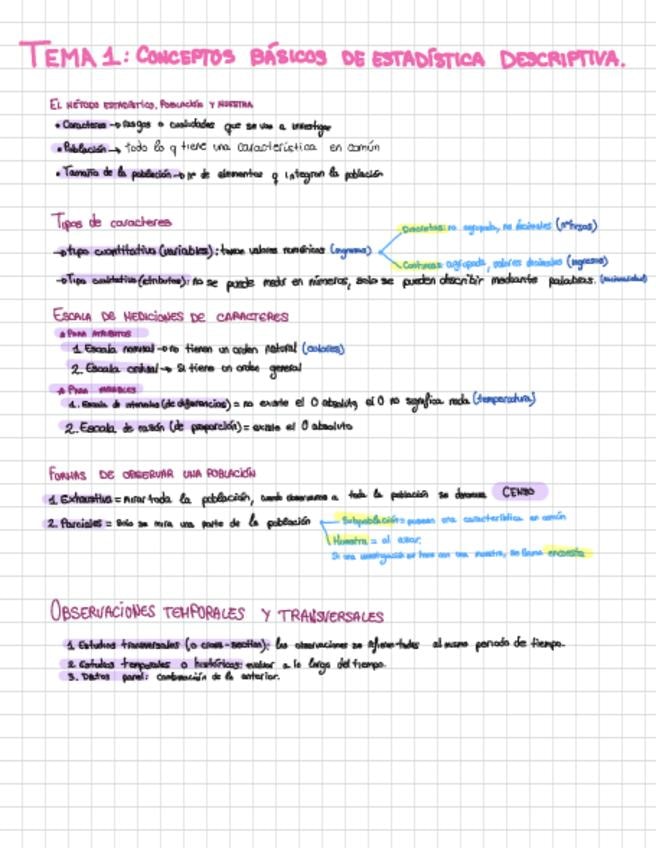 TEMA 1: CONCEPTOS BÁSICOS DE ESTADÍSTICA DESCRIPTIVA.
EL MÉTODO ESTADÍSTICO, POBLACIÓN Y MUESTRA
• Caracteres → rasgos o cualidades que se van a investigar
• Población → todo lo q tiene una característica en común
• Tamaño de la población → nº de elementos q integran la población
Tipos de caracteres
→ tipo cuantitativo (variables): toman valores numéricos (ingresos)
Discretas: no agrupada, no decimales (nº hijos)
Continuas: agrupada, valores decimales (ingresos)
→ Tipo cualitativo (atributos): no se puede medir en números, solo se pueden describir mediante palabras. (nacionalidad)
ESCALA DE MEDICIONES DE CARACTERES
PARA ATRIBUTOS
1. Escala nominal → no tienen un orden natural (colores)
2. Escala ordinal → Si tiene un orden general
PARA VARIABLES
1. Escala de intervalos (de diferencias) = no existe el 0 absoluto, el 0 no significa nada (temperatura)
2. Escala de razón (de proporción) = existe el 0 absoluto
FORMAS DE OBSERVAR UNA POBLACIÓN
1 Exhaustiva = mirar toda la población, cuando observamos a toda la población se denomina CENSO
2. Parciales = Solo se mira una parte de la población
Subpoblación = poseen una característica en común
Muestra = al azar.
Si una investigación se hace con una muestra, se llama encuesta
OBSERVACIONES TEMPORALES Y TRANSVERSALES
1. Estudios transversales (o cross-section): las observaciones se refieren todas al mismo periodo de tiempo.
2. Estudios temporales o históricos: evaluar a lo largo del tiempo.
3. Datos panel: combinación de lo anterior.